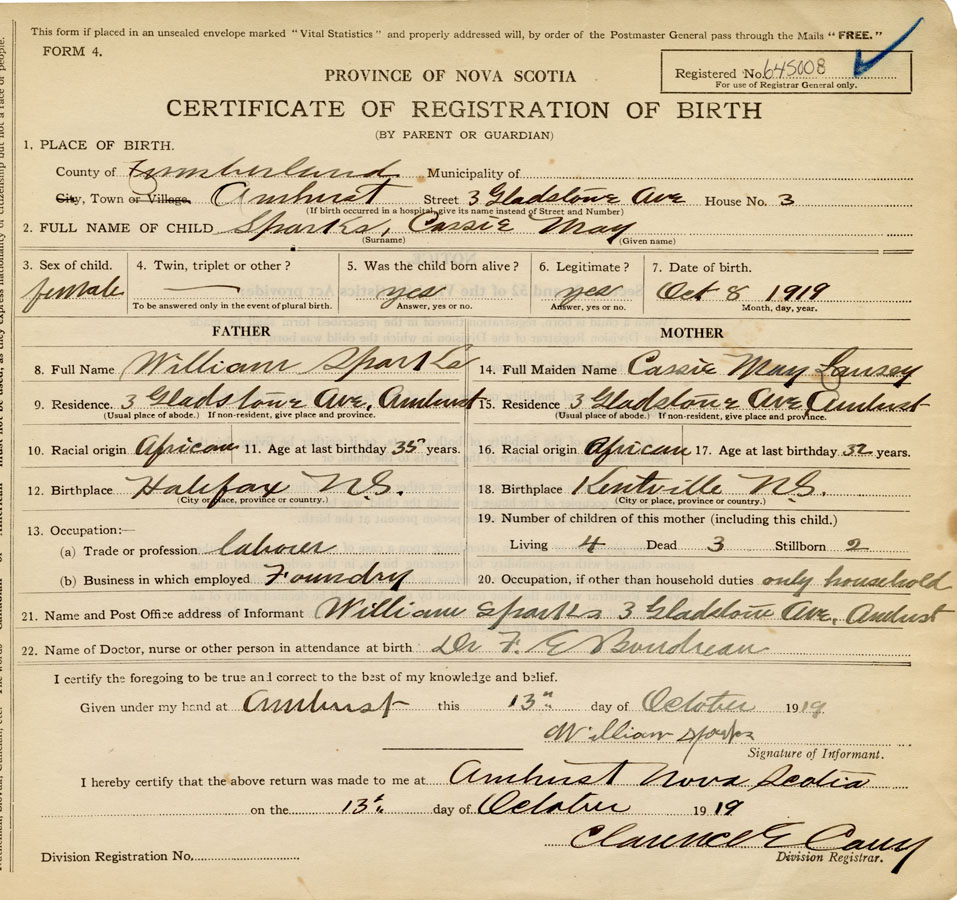 This form if placed in an unsealed envelope marked "Vital Statistics" and properly addressed will, by order of the Postmaster General pass through the Mails "FREE."
FORM 4.
Registered No. 645008
For use of Registrar General only.
PROVINCE OF NOVA SCOTIA
CERTIFICATE OF REGISTRATION OF BIRTH
(BY PARENT OR GUARDIAN)
1. PLACE OF BIRTH.
County of Cumberland Municipality of
City, Town or Village. Amherst Street 3 Gladstone Ave House No. 3
(If birth occurred in a hospital, give its name instead of Street and Number)
2. FULL NAME OF CHILD Sparks, Cassie May
(Surname) (Given name)
3. Sex of child. 4. Twin, triplet or other? 5. Was the child born alive? 6. Legitimate? 7. Date of birth.
female yes yes Oct 8 1919
To be answered only in the event of plural birth. Answer, yes or no. Answer, yes or no. Month, day, year.
FATHER MOTHER
8. Full Name William Sparks 14. Full Maiden Name Cassie May
9. Residence. 3 Gladstone Ave, Amherst 15. Residence 3 Gladstone Ave, Amherst
(Usual place of abode.) If non-resident, give place and province. (Usual place of abode.) If non-resident, give place and province.
10. Racial origin African 11. Age at last birthday 35 years. 16. Racial origin African 17. Age at last birthday 32 years.
12. Birthplace Halifax N.S. 18. Birthplace Kentville N.S.
(City or place, province or country.) (City or place, province or country.)
13. Occupation:— 19. Number of children of this mother (including this child.)
(a) Trade or profession labourer Living 4 Dead 3 Stillborn 2
(b) Business in which employed Foundry 20. Occupation, if other than household duties only household
21. Name and Post Office address of Informant William Sparks 3 Gladstone Ave, Amherst
22. Name of Doctor, nurse or other person in attendance at birth Dr F. E Boudreau
I certify the foregoing to be true and correct to the best of my knowledge and belief.
Given under my hand at Amherst this 13th day of October 1919
William Sparks
Signature of Informant.
I hereby certify that the above return was made to me at Amherst Nova Scotia
on the 13th day of October 1919
Clarence E
Division Registration No. Division Registrar.